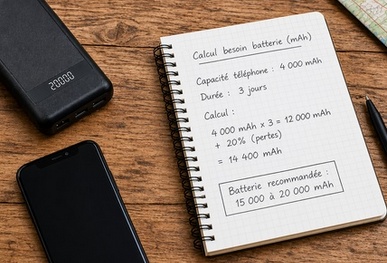 20000
Calcul besoin batterie (mAh)
Capacité téléphone : 4 000 mAh
Durée : 3 jours
Calcul :
4 000 mAh x 3 = 12 000 mAh
+ 20% (pertes)
= 14 400 mAh
Batterie recommandée :
15 000 à 20 000 mAh